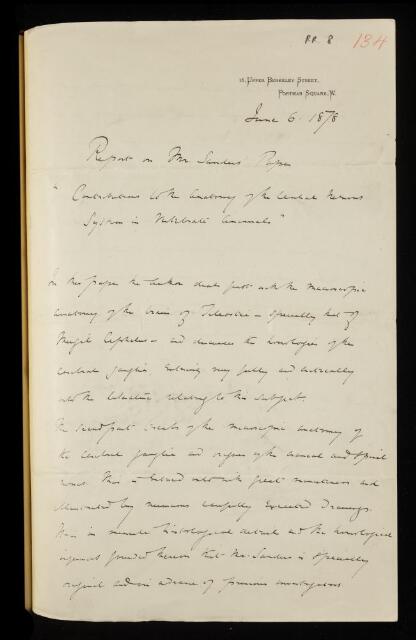 RR. 8 134
18, Upper Berkeley Street,
Portman Square, W.
June 6. 1878
Report on Mr. Sanders' Paper
"Contributions to the Anatomy of the Central Nervous
System in Vertebrate Animals"
In this paper the author deals first with the macroscopic
anatomy of the brain of Teleostei – specially that of
Mugil Cephalus – and discusses the homologies of the
cerebral ganglia, entering very fully and critically
into the literature relating to this subject.
The second part treats of the microscopic anatomy of
the cerebral ganglia and origins of the cranial and spinal
nerves. This is entered into with great minuteness and
illustrated by numerous carefully executed Drawings.
It is in minute histological details and the homological
arguments founded thereon that Mr. Sanders is specially
original and in advance of previous investigators.